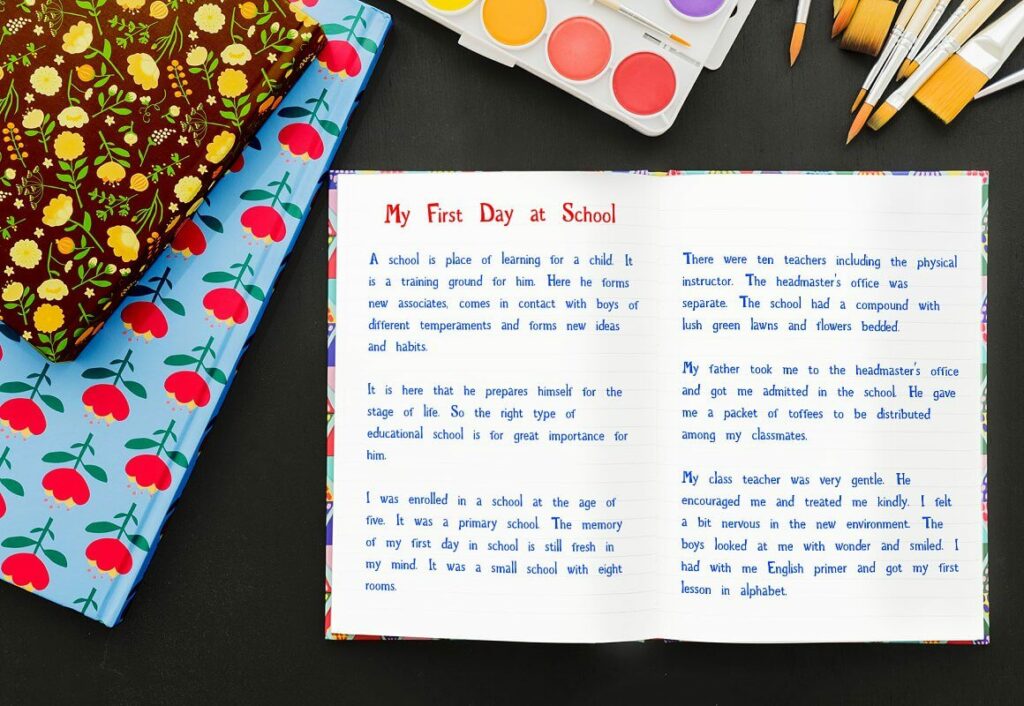 My First Day at School
A school is place of learning for a child. It
is a training ground for him. Here he forms
new associates, comes in contact with boys of
different temperaments and forms new ideas
and habits.
It is here that he prepares himself for the
stage of life. So the right type of
educational school is for great importance for
him.
I was enrolled in a school at the age of
five. It was a primary school. The memory
of my first day in school is still fresh in
my mind. It was a small school with eight
rooms.
There were ten teachers including the physical
instructor. The headmaster's office was
separate. The school had a compound with
lush green lawns and flowers bedded.
My father took me to the headmaster's office
and got me admitted in the school. He gave
me a packet of toffees to be distributed
among my classmates.
My class teacher was very gentle. He
encouraged me and treated me kindly. I felt
a bit nervous in the new environment. The
boys looked at me with wonder and smiled. I
had with me English primer and got my first
lesson in alphabet.